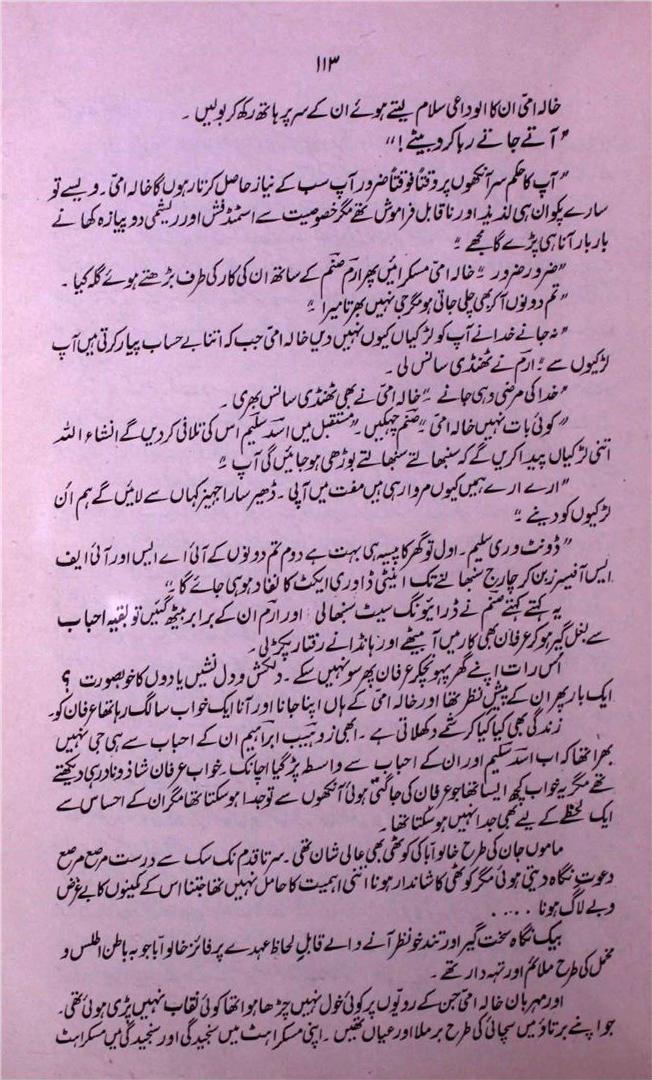 ۱۱۳
خالہ امی ان کا الوداعی سلام لیتے ہوئے ان کے سر پر ہاتھ رکھ کر بولیں ۔
"آتے جاتے رہا کرو بیٹے !"
"آپ کا حکم سر آنکھوں پر وقتاً فوقتاً ضرور آپ سب کے نیاز حاصل کرتا رہوں گا خالہ امی ۔ ویسے تو
سارے پکوان ہی لذیذ اور ناقابل فراموش تھے مگر خصوصیت سے اسٹفڈ فش اور ریشمی دو پیازہ کھانے
بار بار آنا ہی پڑے گا مجھے "
"ضرور ضرور " خالہ امی مسکرائیں پھر ارم صنم کے ساتھ ان کی کار کی طرف بڑھتے ہوئے گلہ کیا ۔
"تم دونوں آکر بھی چلی جاتی ہو مگر جی نہیں بھرتا میرا "
"نہ جانے خدا نے آپ کو لڑکیاں کیوں نہیں دیں خالہ امی جب کہ اتنا بے حساب پیار کرتی ہیں آپ
لڑکیوں سے " ارم نے ٹھنڈی سانس لی ۔
"خدا کی مرضی وہی جانے " خالہ امی نے بھی ٹھنڈی سانس بھری ۔
"کوئی بات نہیں خالہ امی " صنم چہکیں ۔ "مستقبل میں اسد سلیم اس کی تلافی کر دیں گے انشاء اللہ
اتنی لڑکیاں پیدا کریں گے کہ سنبھالتے سنبھالتے بوڑھی ہو جائیں گی آپ "
"ارے ارے ہمیں کیوں مروا رہی ہیں مفت میں آپی ۔ ڈھیر سارا جہیز کہاں سے لائیں گے ہم ان
لڑکیوں کو دینے "
"ڈونٹ وری سلیم ۔ اول تو گھر کا پیسہ ہی بہت ہے دوم تم دونوں کے آئی اے ایس اور آئی ایف
ایس آفیسرز بن کر چارج سنبھالنے تک اینٹی ڈاوری ایکٹ کا نفاذ ہو ہی جائے گا "
یہ کہتے کہتے صنم نے ڈرائیونگ سیٹ سنبھالی اور ارم ان کے برابر بیٹھ گئیں تو بقیہ احباب
سے بغل گیر ہو کر عرفان بھی کار میں آ بیٹھے اور ہانڈا نے رفتار پکڑ لی ۔
اس رات اپنے گھر پہونچکر عرفان پھر سو نہیں سکے ۔ دلکش و دل نشیں یادوں کا خوبصورت ؟
ایک بار پھر ان کے پیش نظر تھا اور خالہ امی کے ہاں اپنا جانا اور آنا ایک خواب سا لگ رہا تھا عرفان کو ۔
زندگی بھی کیا کیا کرشمے دکھلاتی ہے ۔ ابھی زوہیب ابراہیم ان کے احباب سے ہی جی نہیں
بھرا تھا کہ اب اسد سلیم اور ان کے احباب سے واسطہ پڑ گیا اچانک ۔ خواب عرفان شاذ و نادر ہی دیکھتے
تھے مگر یہ خواب کچھ ایسا تھا جو عرفان کی جاگتی ہوئی آنکھوں سے تو جدا ہو سکتا تھا مگر ان کے احساس سے
ایک لحظے کے لیے بھی جدا نہیں ہو سکتا تھا ۔
ماموں جان کی طرح خالو ابا کی کوٹھی بھی عالی شان تھی ۔ سر تا قدم نک سک سے درست مرصع مرصع
دعوت نگاہ دیتی ہوئی مگر کوٹھی کا شاندار ہونا اتنی اہمیت کا حامل نہیں تھا جتنا اس کے مکینوں کا بے غرض
و بے لاگ ہونا . . . . .
بیک نگاہ سخت گیر اور تند خو نظر آنے والے قابل لحاظ عہدے پر فائز خالو ابا جو بہ باطن اطلس و
مخمل کی طرح ملائم اور تہہ دار تھے ۔
اور مہربان خالہ امی جن کے رویوں پر کوئی خول نہیں چڑھا ہوا تھا کوئی نقاب نہیں پڑی ہوئی تھی ۔
جو اپنے برتاؤ میں سچائی کی طرح برملا اور عیاں تھیں ۔ اپنی مسکراہٹ میں سنجیدگی اور سنجیدگی میں مسکراہٹ